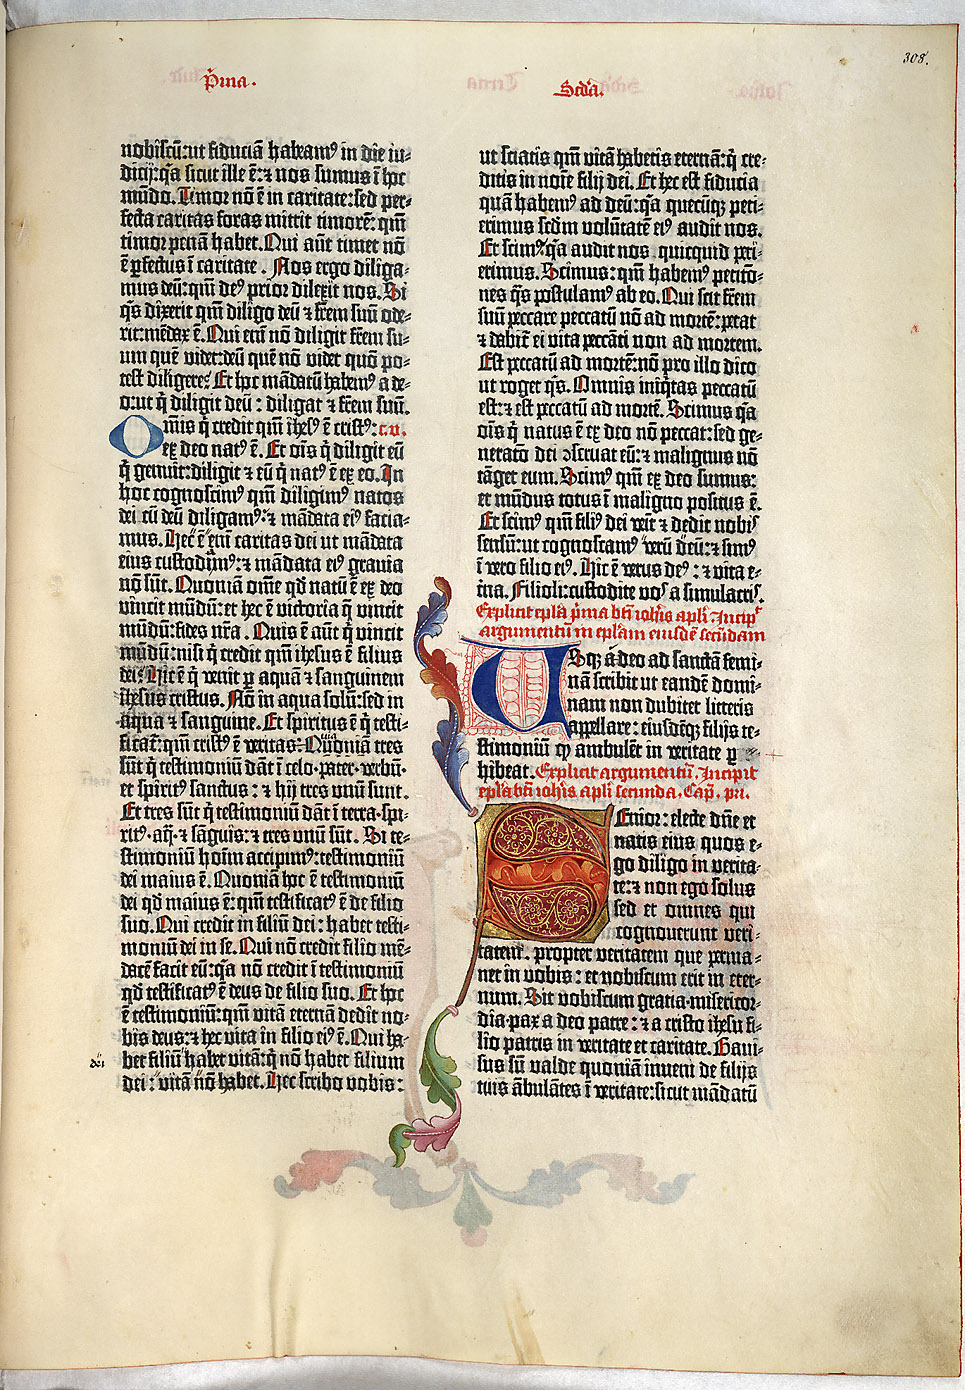 308.
p̄ma.
Scd̄a.
nobiscū: ut fiduciā habeamꝰ in die iu-
dicij: q̄a sicut ille ē: ⁊ nos sumus ī hoc
mūdo. Timor nō ē in caritate: sed per-
fecta caritas foras mittit timorē: qm̄
timor penā habet. Qui aūt timet nō
ē ꝑfectus ī caritate. Nos ergo diliga-
mus deū: qm̄ deꝰ prior dilexit nos. Si
q̄s dixerit qm̄ diligo deū ⁊ frēm suū ode-
rit: mēdax ē. Qui em̄ nō diligit frēm su-
um quē videt: deū quē nō videt quō po-
test diligere? Et hoc mādatū habemꝰ a de-
o: ut q̄ diligit deū: diligat ⁊ frēm suū.
Om̄is q̄ credit qm̄ ihesꝰ ē cristꝰ: c. v.
ex deo natꝰ ē. Et oīs q̄ diligit eū
q̄ genuit: diligit ⁊ eū q̄ natꝰ ē ex eo. In
hoc cognoscimꝰ qm̄ diligimꝰ natos
dei cū deū diligamꝰ: ⁊ mādata eiꝰ facia-
mus. Hec ē em̄ caritas dei ut mādata
eius custodiamꝰ: ⁊ mādata eiꝰ grauia
nō sūt. Quoniā om̄e qd̄ natū ē ex deo
vincit mūdū: et hec ē victoria q̄ vincit
mūdū: fides nr̄a. Quis ē aūt q̄ vincit
mūdū: nisi q̄ credit qm̄ ihesus ē filius
dei? Hic ē q̄ venit ꝑ aquā ⁊ sanguinem
ihesus cristus. Nō in aqua solū: sed in
aqua ⁊ sanguine. Et spiritus ē q̄ testi-
ficat᷑: qm̄ cristꝰ ē veritas: Quoniā tres
sūt q̄ testimoniū dāt ī celo· pater· verbū·
et spiritꝰ sanctus: ⁊ hij tres unū sunt.
Et tres sūt q̄ testimoniū dāt ī terra· spi-
ritꝰ· aq̄· ⁊ sāguis: ⁊ tres unū sūt. Si te-
stimoniū hoīm accipimꝰ: testimoniū
dei maius ē. Quoniā hoc ē testimoniū
dei qd̄ maius ē: qm̄ testificatꝰ ē de filio
suo. Qui credit in filiū dei: habet testi-
moniū dei in se. Qui nō credit filio mē-
dacē facit eū: q̄a nō credit ī testimoniū
qd̄ testificatꝰ ē deus de filio suo. Et hoc
ē testimoniū: qm̄ vitā eternā dedit no-
bis deus: ⁊ hec vita in filio eiꝰ ē. Qui ha-
bet filiū habet vitā: q̄ nō habet filium
dei
dei: vitā nō habet. Hec scribo vobis:
ut sciatis qm̄ vitā habetis eternā: q̄ cre-
ditis in noīe filij dei. Et hec est fiducia
quā habemꝰ ad deū: q̄a quecūqꝫ peti-
erimus scdm volūtatē eiꝰ audit nos.
Et scimꝰ q̄a audit nos quicquid peti-
erimus. Scimus: qm̄ habemꝰ petitō-
nes q̄s postulamꝰ ab eo. Qui scit frēm
suū peccare peccatū nō ad mortē: petat
⁊ dabit᷑ ei vita peccāti non ad mortem.
Est peccatū ad mortē: nō pro illo dico
ut roget q̄s. Omnis iniq̄tas peccatū
est: ⁊ est peccatū ad mortē. Scimus q̄a
oīs q̄ natus ē ex deo nō peccat: sed ge-
neratō dei ꝯseruat eū: ⁊ malignus nō
tāget eum. Scimꝰ qm̄ ex deo sumus:
et mūdus totus ī maligno positus ē.
Et scimꝰ qm̄ filiꝰ dei veīt ⁊ dedit nobis
sensū: ut cognoscamꝰ verū deū: ⁊ simꝰ
ī vero filio eiꝰ. Hic ē verus deꝰ: ⁊ vita e-
t̄na. Filioli: custodite vos a simulacris.
Explicit epl̄a p̄ma bt̄i ioh̄is apl̄i. Incip̄
argumentū in epl̄am eiusdē secūdam
Usqꝫ adeo ad sanctā femi-
nā scribit ut eandē domi-
nam non dubitet litteris
appellare: eiusdēqꝫ filijs te-
stimoniū ꝙ ambulēt in veritate ꝑ
hibeat. Explicit argumentū. Incipit
epl̄a bt̄i ioh̄is apl̄i secunda. Cap̄. pri.
Senior: electe dn̄e et
natis eius quos e-
go diligo in verita-
te: ⁊ non ego solus
sed et omnes qui
cognouerunt veri-
tatem. propter veritatem que perma-
net in vobis: et nobiscum erit in eter-
num. Sit vobiscum gratia· misericor-
dia· pax a deo patre: ⁊ a cristo ihesu fi-
lio patris in veritate et caritate. Gaui-
sus sū valde quoniā inueni de filijs
tuis ābulātes ī veritate: sicut mādatū